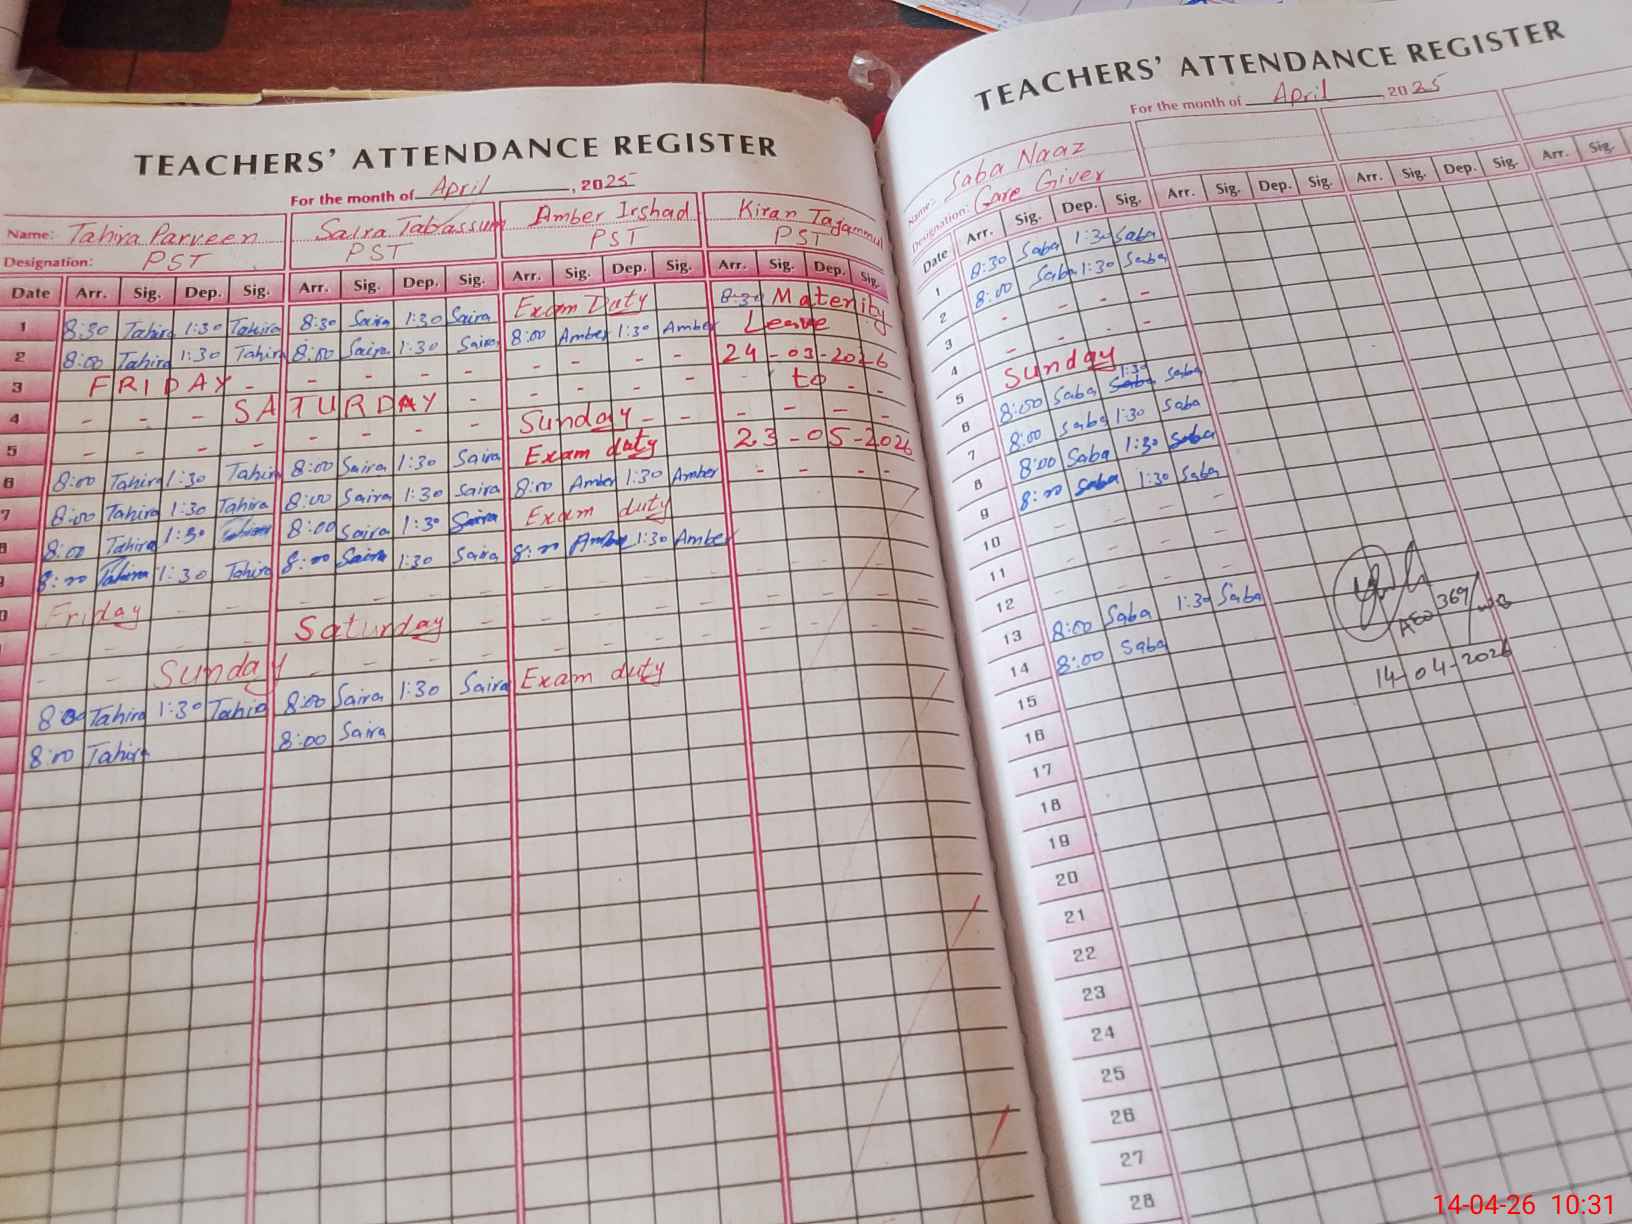 TEACHERS' ATTENDANCE REGISTER
For the month of April, 2025
Name: Tahira Parveen Saira Tabassum Amber Irshad Kiran Tajammul
Designation: PST PST PST PST
Date Arr. Sig. Dep. Sig. Arr. Sig. Dep. Sig. Arr. Sig. Dep. Sig. Arr. Sig. Dep. Sig.
1 8:30 Tahira 1:30 Tahira 8:30 Saira 1:30 Saira Exam Duty 8:30 Maternity
2 8:00 Tahira 1:30 Tahira 8:00 Saira 1:30 Saira 8:00 Amber 1:30 Amber Leave
3 FRIDAY - - - - - - - - - 24-03-2026
4 - - - SATURDAY - - - - - to -
5 - - - - - - - - Sunday - - - - - -
6 8:00 Tahira 1:30 Tahira 8:00 Saira 1:30 Saira Exam duty 23-05-2026
7 8:00 Tahira 1:30 Tahira 8:00 Saira 1:30 Saira 8:00 Amber 1:30 Amber - - - -
8 8:00 Tahira 1:30 Tahira 8:00 Saira 1:30 Saira Exam duty
9 8:00 Tahira 1:30 Tahira 8:00 Saira 1:30 Saira 8:00 Amber 1:30 Amber
Friday - - - - - - - - - - - - -
- - - - Saturday - - - - - - - - -
- - Sunday - - - - - - - - - - - -
8:00 Tahira 1:30 Tahira 8:00 Saira 1:30 Saira Exam duty
8:00 Tahira 8:00 Saira
TEACHERS' ATTENDANCE REGISTER
For the month of April, 2025
Name: Saba Naaz
Designation: Care Giver
Date Arr. Sig. Dep. Sig. Arr. Sig. Dep. Sig. Arr. Sig. Dep. Sig. Arr. Sig.
1 8:30 Saba 1:30 Saba
2 8:00 Saba 1:30 Saba
3 - - - -
4 - - - -
5 Sunday
6 8:00 Saba 1:30 Saba
7 8:00 Saba 1:30 Saba
8 8:00 Saba 1:30 Saba
9 8:00 Saba 1:30 Saba
10 - - - -
11 - - - -
12 - - - -
13 8:00 Saba 1:30 Saba
14 8:00 Saba
AEO 369/WB
14-04-2026
15
16
17
18
19
20
21
22
23
24
25
26
27
28
14-04-26 10:31